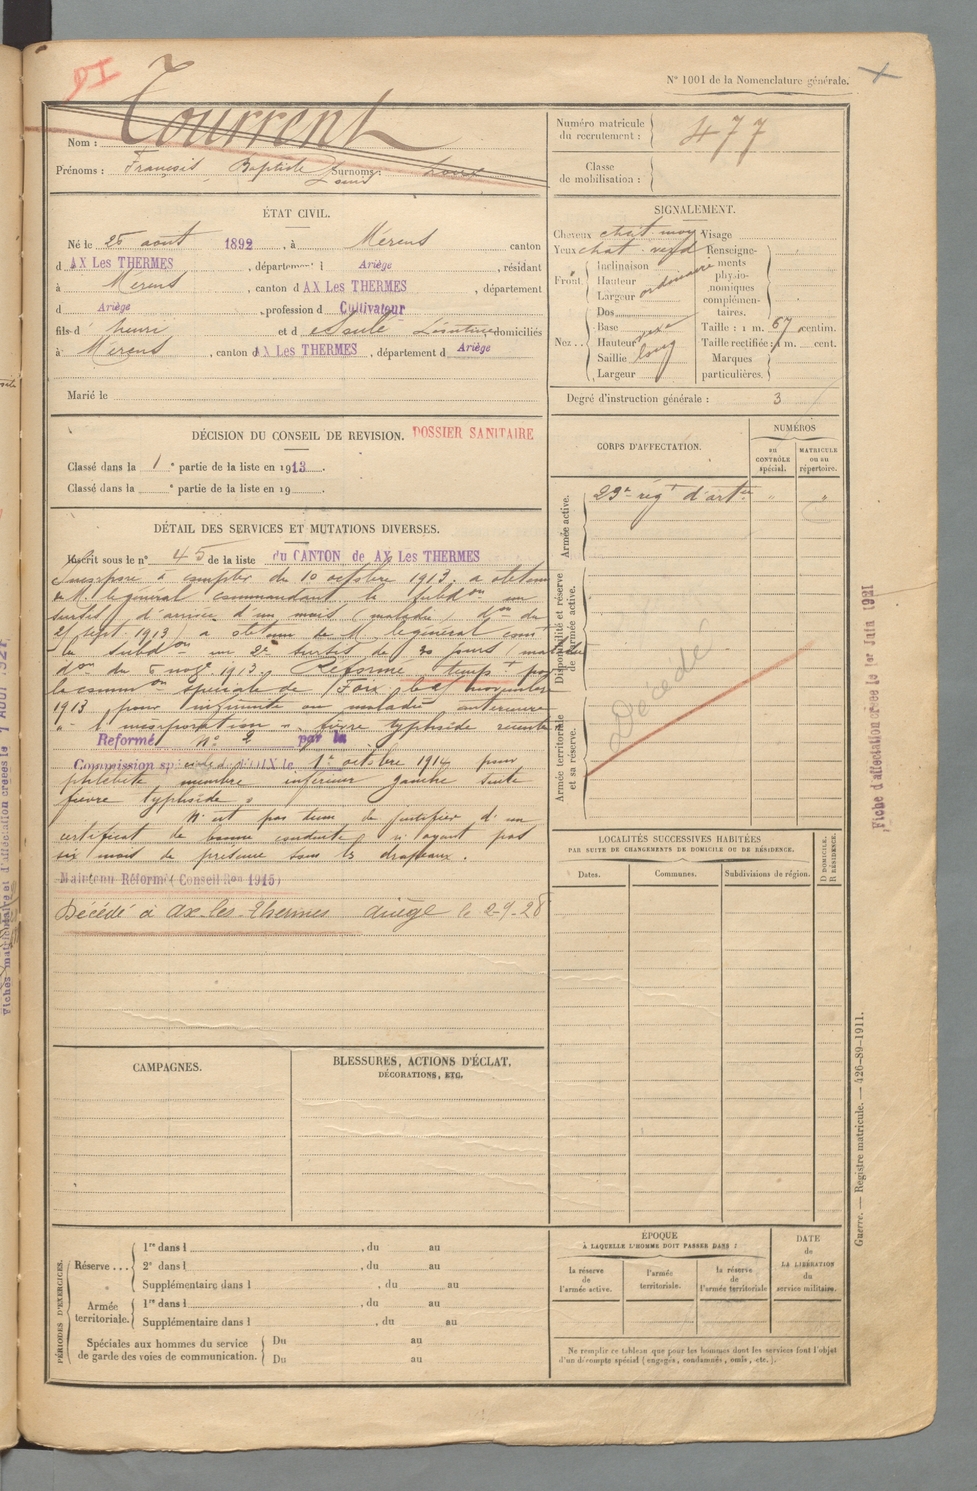 N° 1001 de la Nomenclature générale.
Nom : Tourrent
Prénoms : François, Baptiste Surnoms :
Louis
Numéro matricule du recrutement : 477
Classe de mobilisation :
ÉTAT CIVIL.
Né le 25 août 1892, à Mérens canton
d AX Les THERMES, département d Ariège, résidant
à Mérens, canton d AX Les THERMES, département
d Ariège, profession d Cultivateur
fils d' henri et d domiciliés
à Mérens, canton d AX Les THERMES, département d Ariège
Marié le
SIGNALEMENT.
Cheveux chat moy Visage
Yeux chat verd Renseignements physionomiques complémentaires.
Front Inclinaison
Hauteur ordinaire
Largeur
Nez.. Dos
Base
Hauteur
Saillie long
Largeur
Taille : 1 m. 67 centim.
Taille rectifiée : 1 m. cent.
Marques particulières.
Degré d'instruction générale : 3
DÉCISION DU CONSEIL DE REVISION. DOSSIER SANITAIRE
Classé dans la 1e partie de la liste en 1913.
Classé dans la e partie de la liste en 19 .
DÉTAIL DES SERVICES ET MUTATIONS DIVERSES.
Inscrit sous le n° 45 de la liste du CANTON de AX Les THERMES
Incorporé à compter du 10 octobre 1913. a obtenu
de M. le général commandant la subdon un
sursis d'arrivée d'un mois (maladie) don du
sept 1913) a obtenu de M. le général comt
la subdon un 2e sursis de 30 jours (maladie
don du 5 nov 1913. Réformé tempt par
la common spéciale de Foix le novembre
1913 pour infirmité ou maladie antérieure
à l'incorporation " fièvre typhoïde récente
Reformé n° 2 par la
Commission spéciale de FOIX le 1er octobre 1914 pour
phlébite membre inférieur gauche suite
fièvre typhoïde.
N'est pas tenu de justifier d'un
certificat de bonne conduite n'ayant pas
six mois de présence sous les drapeaux.
Maintenu Réformé (Conseil Ron 1915)
Décédé à Ax-les-Thermes Ariège le 2-9-28
CORPS D'AFFECTATION.
NUMÉROS
au CONTRÔLE spécial.
MATRICULE ou au répertoire.
Armée active.
23e régt d'artie " "
Disponibilité et réserve de l'armée active.
Armée territoriale et sa réserve.
Décédé
LOCALITÉS SUCCESSIVES HABITÉES
PAR SUITE DE CHANGEMENTS DE DOMICILE OU DE RÉSIDENCE.
D DOMICILE.
R RÉSIDENCE.
Dates. Communes. Subdivisions de région.
CAMPAGNES.
BLESSURES, ACTIONS D'ÉCLAT,
DÉCORATIONS, ETC.
PÉRIODES D'EXERCICES.
Réserve ... 1re dans l , du au
2e dans l , du au
Supplémentaire dans l , du au
Armée territoriale. 1re dans l , du au
Supplémentaire dans l , du au
Spéciales aux hommes du service de garde des voies de communication. Du au
Du au
ÉPOQUE
À LAQUELLE L'HOMME DOIT PASSER DANS :
la réserve de l'armée active.
l'armée territoriale.
la réserve de l'armée territoriale
DATE de LA LIBÉRATION du service militaire.
Ne remplir ce tableau que pour les hommes dont les services font l'objet
d'un décompte spécial (engagés, condamnés, omis, etc.).
Fiche d'affectation créée le 1er Juin 1921
Guerre. — Registre matricule. — 426-89-1911.